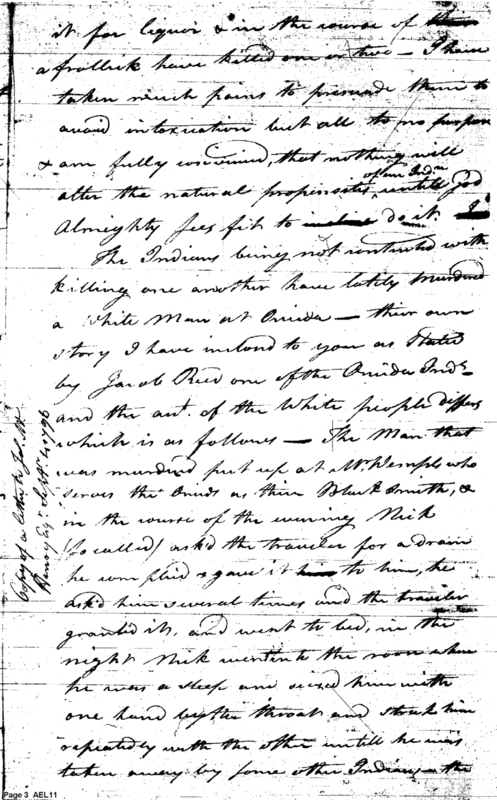 it for liquor & in the course of
a frollick have killed one or two — I have
taken much pains to persuade them to
avoid intoxication but all to no purpose
& am fully convinced, that nothing will
alter the natural propensities of an Indn untill God
Almighty sees fit to do it.
The Indians being not contented with
killing one another have lately murdered
a White Man at Oneida — their own
story I have inclosd to you as Stated
by Jacob Reed one of the Oneida Inds
and the act. of the White people differs
which is as follows — The Man that
was murdered put up at Mr Wemples who
serves the Oneids as their Black Smith, &
in the course of the evening Nick
(so called) ask'd the traveler for a dram
he complied & gave it to him, he
ask'd him several times and the traveler
granted it, and went to bed, in the
night Nick went into the room where
he was a sleep and seized him with
one hand by the throat and struck him
repeatedly with the other untill he was
taken away by some other Indians — the
Copy of a letter to
Henry Esqr. Septr. 4 1796
Page 3 AEL11